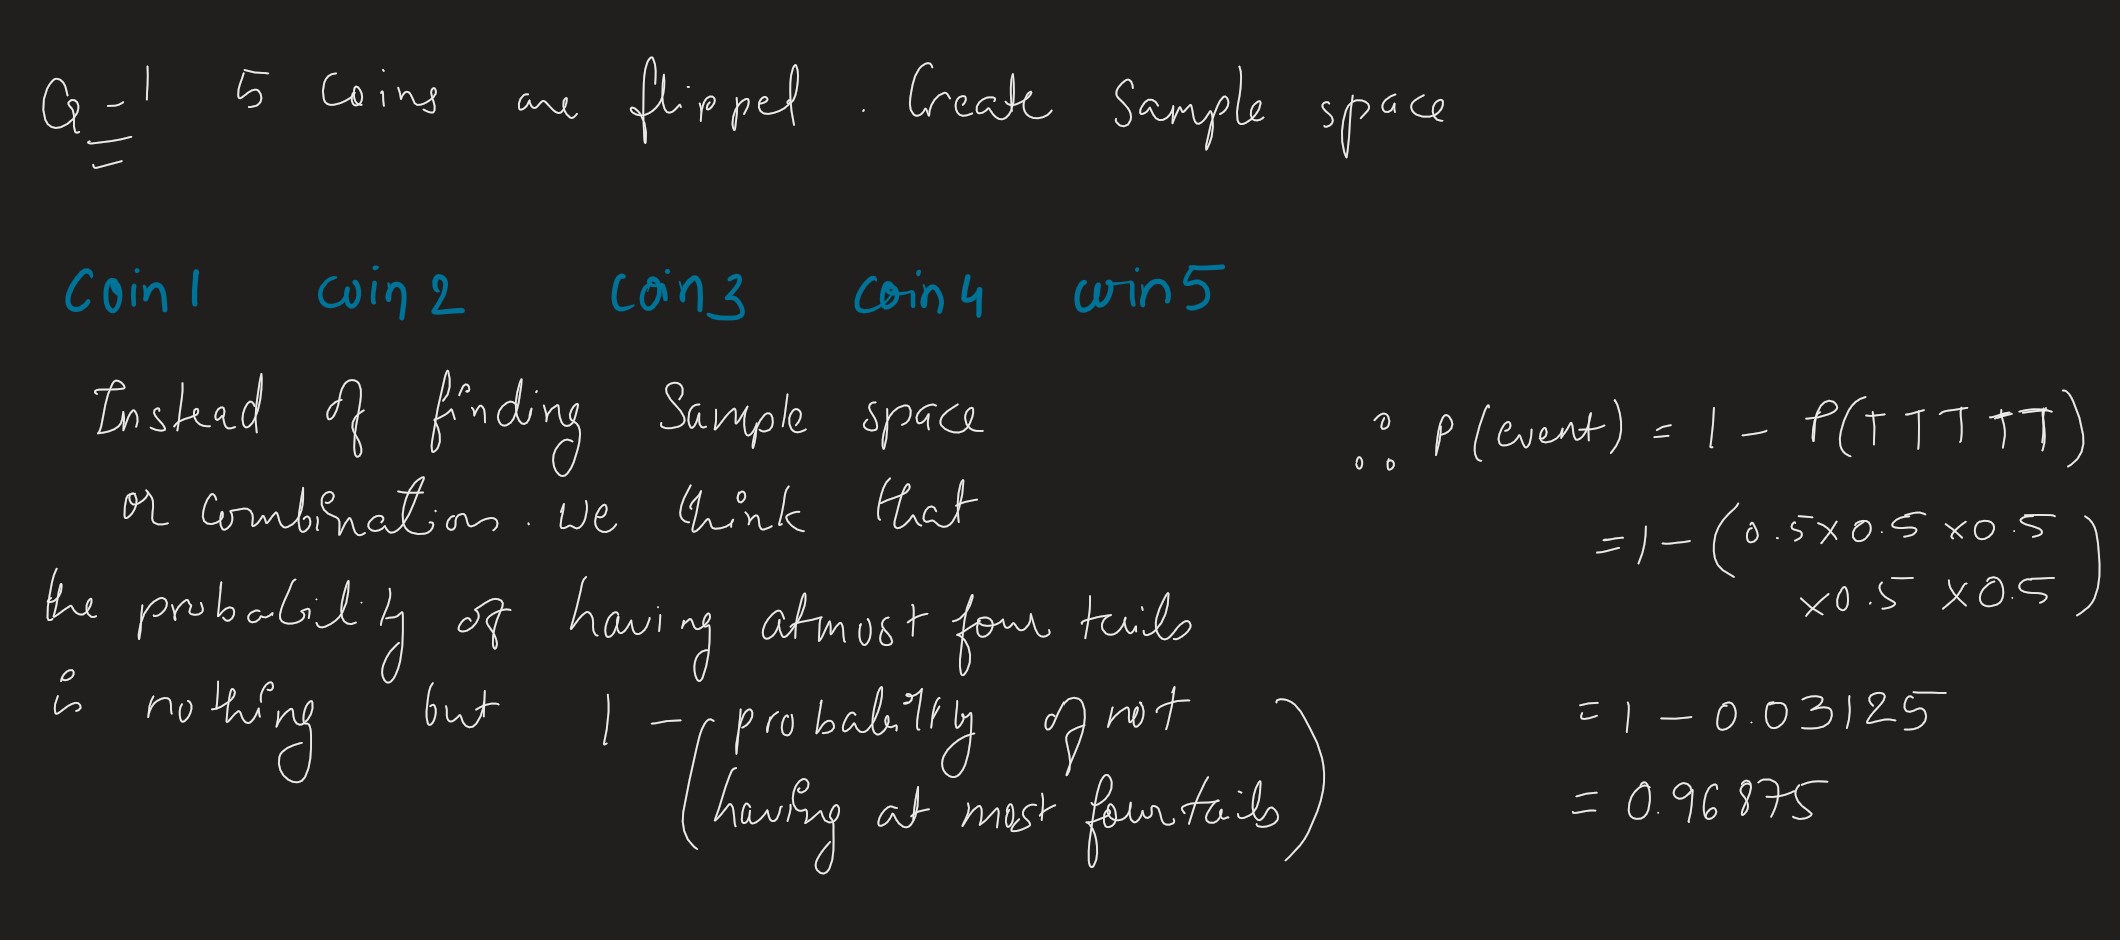 Q-1 5 Coins are flipped. Create Sample space
Coin 1 coin 2 coin 3 coin 4 coin 5
Instead of finding Sample space
or combination. we think that
the probability of having atmost four tails
is nothing but 1 - (probability of not
having at most four tails)
∴ P(event) = 1 - P(TTTTT)
= 1 - (0.5 × 0.5 × 0.5
× 0.5 × 0.5)
= 1 - 0.03125
= 0.96875